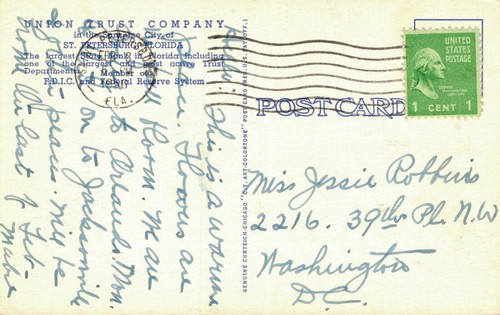 UNION TRUST COMPANY
in the Sunshine City of
ST. PETERSBURG, FLORIDA
The largest State Bank in Florida including
one of the largest and most active Trust
Departments. Member of
F.D.I.C. and Federal Reserve System
FLA.
UNITED
STATES
POSTAGE
1 CENT 1
POST CARD
GENUINE CURTEICH-CHICAGO "C.T. ART-COLORTONE" POST CARD (REG. U.S. PAT. OFF.)
This is a warm
Flowers are
Room. M are
at Orlando, Mon.
on to Jacksonville
plans. Will be
home the last of Feb-
Mabel
Miss Jessie Robbins
2216. 39th Pl. N.W
Washington
D.C.